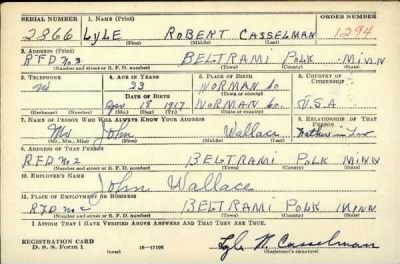 SERIAL NUMBER 1. NAME (Print) ORDER NUMBER
2866 LYLE ROBERT CASSELMAN 1294
(First) (Middle) (Last)
2. ADDRESS (Print)
RFD No 3 BELTRAMI POLK MINN
(Number and street or R. F. D. number) (Town) (County) (State)
3. TELEPHONE 4. AGE IN YEARS 5. PLACE OF BIRTH 6. COUNTRY OF CITIZENSHIP
no 23 NORMAN Co.
DATE OF BIRTH (Town or county)
18 1917 NORMAN Co. U.S.A
(Exchange) (Number) (Mo.) (Day) (Yr.) (State or country)
7. NAME OF PERSON WHO WILL ALWAYS KNOW YOUR ADDRESS 8. RELATIONSHIP OF THAT PERSON
Mr John Wallace Father in Law
(Mr., Mrs., Miss) (First) (Middle) (Last)
9. ADDRESS OF THAT PERSON
R.F.D. No 2 BELTRAMI POLK MINN
(Number and street or R. F. D. number) (Town) (County) (State)
10. EMPLOYER'S NAME
John Wallace
11. PLACE OF EMPLOYMENT OR BUSINESS
RFD no 2 BELTRAMI POLK MINN.
(Number and street or R. F. D. number) (Town) (County) (State)
I AFFIRM THAT I HAVE VERIFIED ABOVE ANSWERS AND THAT THEY ARE TRUE.
REGISTRATION CARD
D. S. S. Form 1 (over) 16—17105
Lyle R. Casselman
(Registrant's signature)